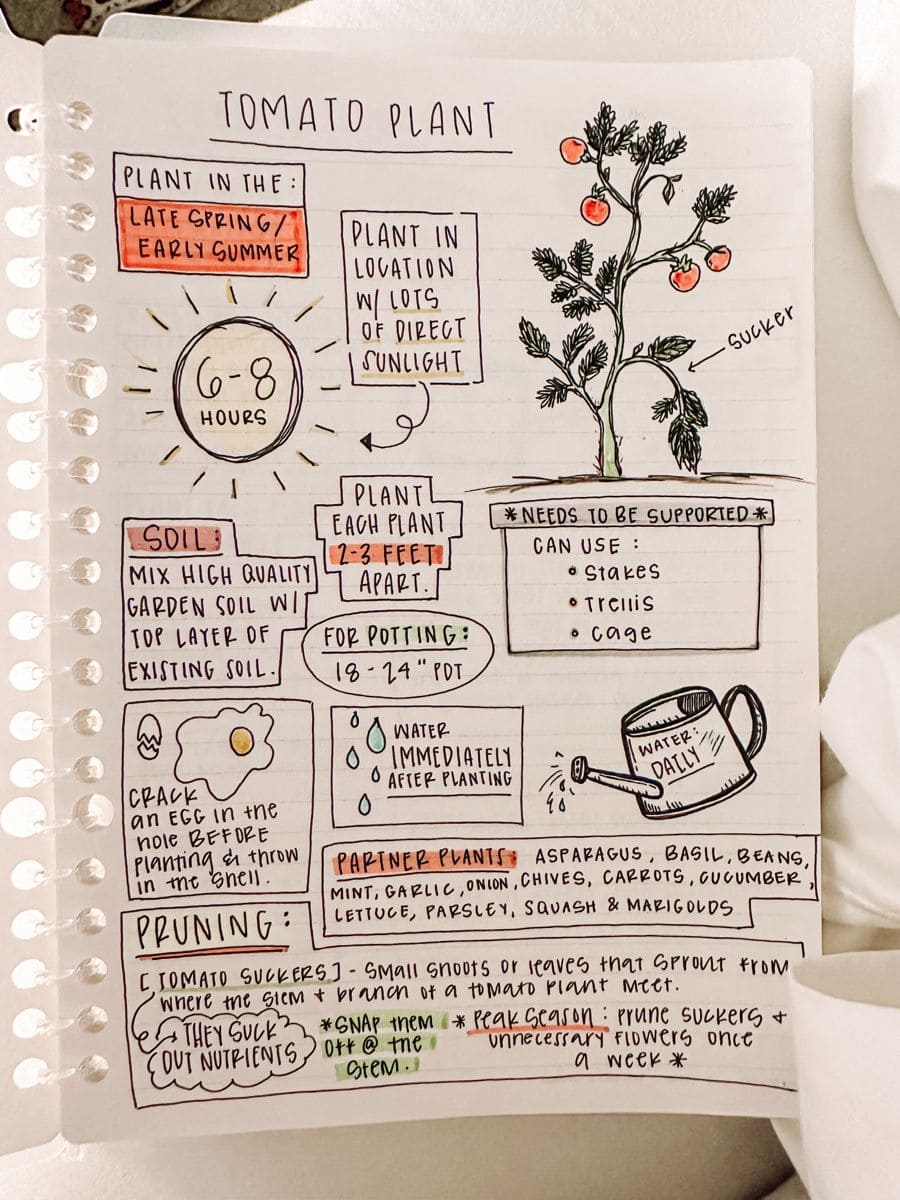 TOMATO PLANT
PLANT IN THE:
LATE SPRING/
EARLY SUMMER
PLANT IN
LOCATION
W/ LOTS
OF DIRECT
SUNLIGHT
6-8
HOURS
SUCKER
SOIL:
MIX HIGH QUALITY
GARDEN SOIL W/
TOP LAYER OF
EXISTING SOIL.
PLANT
EACH PLANT
2-3 FEET
APART.
*NEEDS TO BE SUPPORTED*
CAN USE:
• Stakes
• Trellis
• Cage
FOR POTTING:
18-24" POT
CRACK
an EGG IN the
hole BEFORE
planting & throw
in the shell.
WATER
IMMEDIATELY
AFTER PLANTING
WATER:
DAILY
PARTNER PLANTS: ASPARAGUS, BASIL, BEANS,
MINT, GARLIC, ONION, CHIVES, CARROTS, CUCUMBER,
LETTUCE, PARSLEY, SQUASH & MARIGOLDS
PRUNING:
[TOMATO SUCKERS] - Small shoots or leaves that sprout from
where the stem + branch of a tomato plant meet.
THEY SUCK
OUT NUTRIENTS
*SNAP them
Off @ the
Stem.
*Peak Season: prune suckers +
unnecessary flowers once
a week*